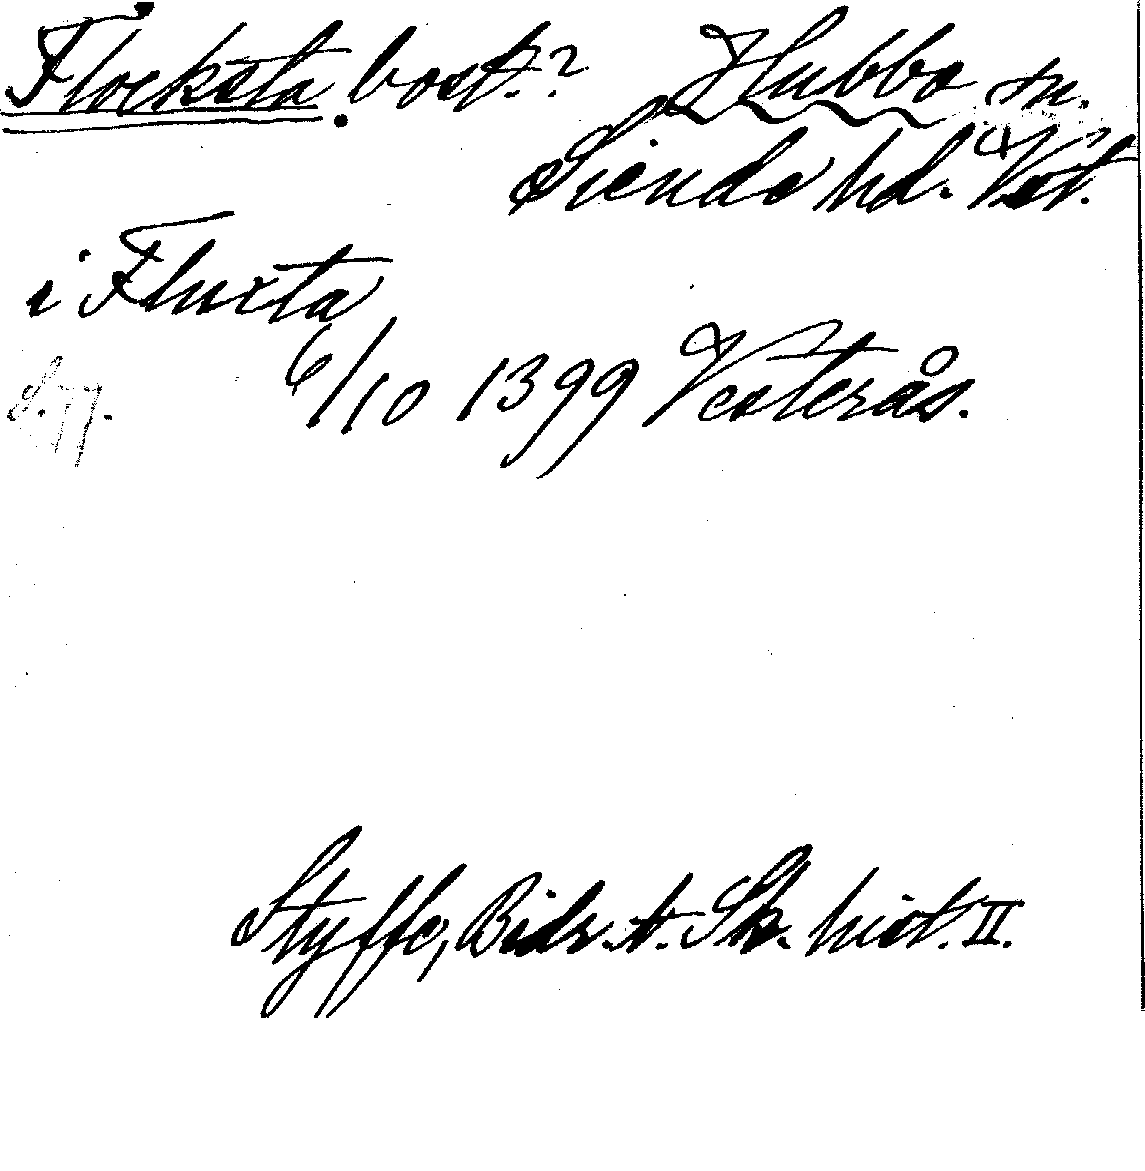 Flocksta bost.? Hubbo sn.
Siende hd. Vst.
i Fluxta
s. 77. 6/10 1399 Vesterås.
Styffe, Bidr. t. Sk. hist. II.